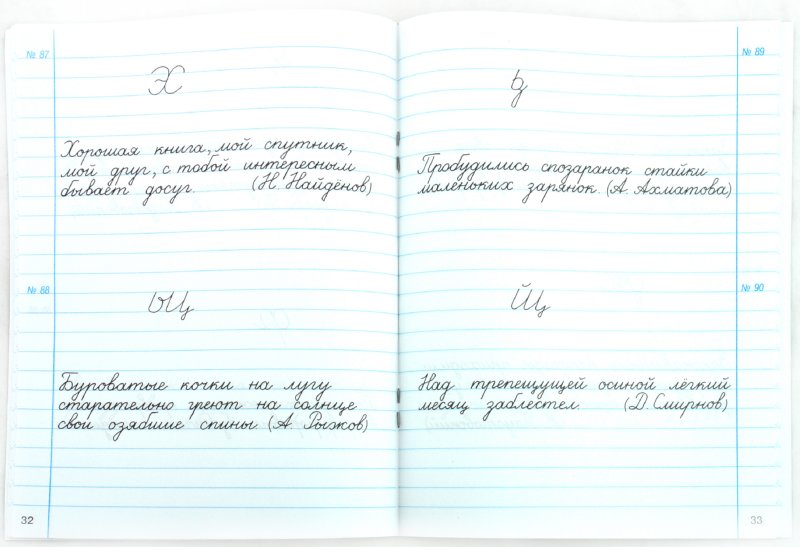 № 87
Х
Хорошая книга, мой спутник,
мой друг, с тобой интересным
бывает досуг. (Н. Найдёнов)
№ 88
ЫЦ
Буроватые кочки на лугу
старательно греют на солнце
свои озябшие спины. (А. Рыжов)
32
№ 89
Пробудились спозаранок стайки
маленьких зарянок. (А. Ахматова)
№ 90
Йц
Над трепещущей осиной лёгкий
месяц заблестел. (Д. Смирнов)
33